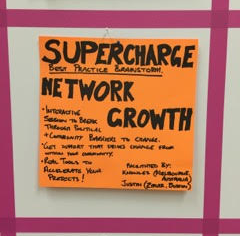 SUPERCHARGE
BEST PRACTICE BRAINSTORM.
NETWORK
GROWTH
• INTERACTIVE
SESSION TO BREAK
THROUGH POLITICAL
+ COMMUNITY BARRIERS TO CHANGE.
• GET SUPPORT THAT DRIVES CHANGE FROM
WITHIN YOUR COMMUNITY.
• REAL TOOLS TO
ACCELERATE YOUR
PROJECTS!
FACILITATED BY:
(MELBOURNE,
AUSTRALIA)
JUSTIN (BOSTON)